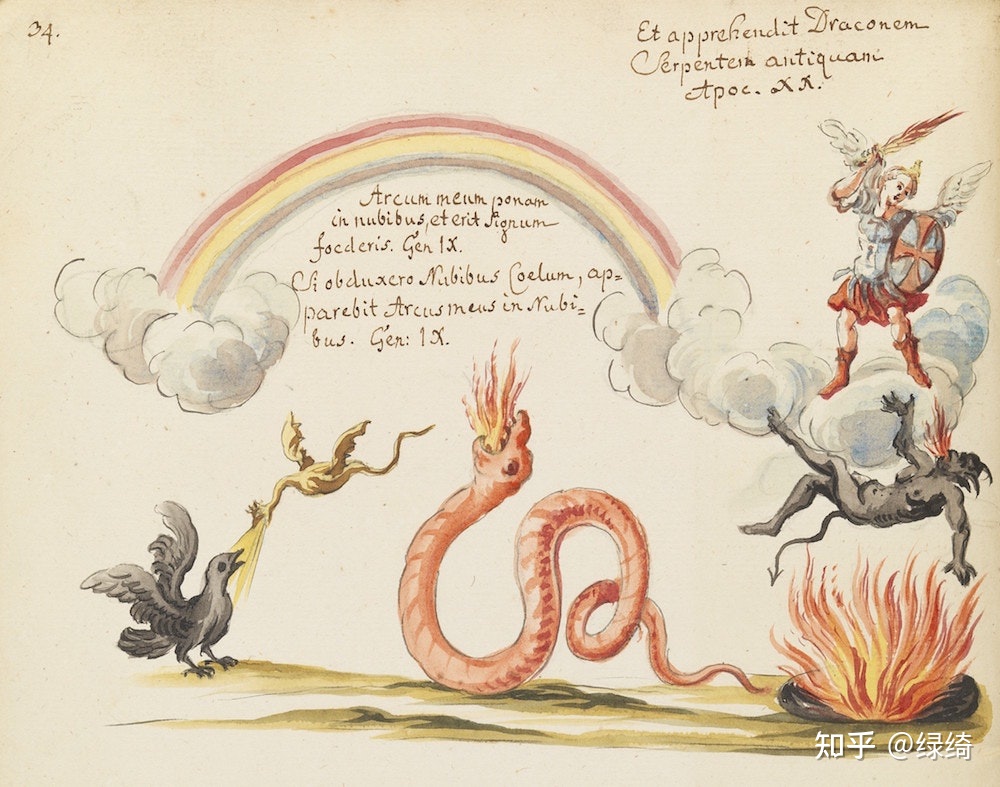 34.
Et apprehendit Draconem
Serpentem antiquam
Apoc. XX.
Arcum meum ponam
in nubibus, et erit signum
foederis. Gen IX.
Si obduxero Nubibus Coelum, ap=
parebit Arcus meus in Nubi=
bus. Gen: IX.
知乎 @绿绮